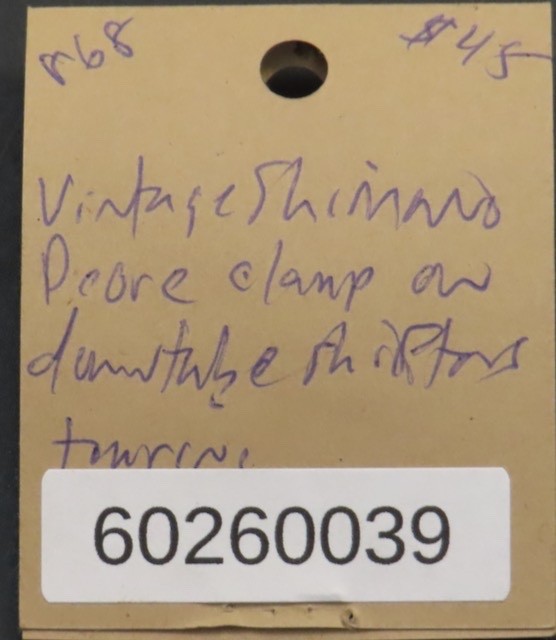 r68 $45
Vintage Shimano
Deore clamp on
downtube shifters
touring
60260039